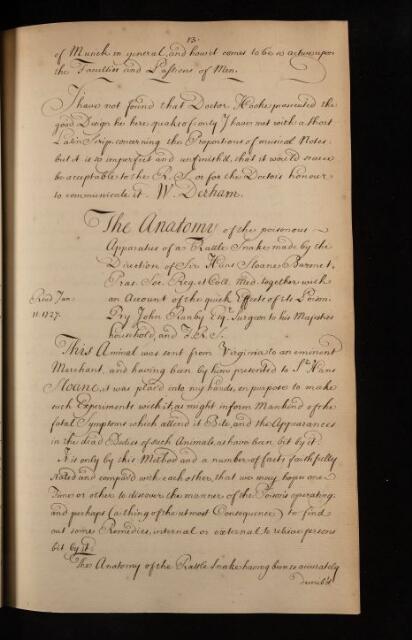 13.
of Musick in general, and how it comes to be so active upon
the Faculties and Passions of Men.
I have not found that Doctor Hooke prosecuted the
good Design he here speaks of; only I have met with a short
Latin Scrip concerning the Proportions of musical Notes
but it is so imperfect and unfinish'd, that it would scarce
be acceptable to the R. S. or for the Doctors honour
to communicate it. W. Derham.
The Anatomy of the poisonous
Apparatus of a Rattle Snake made by the
Direction of Sir Hans Sloane Baronet,
Præs. Soc. Reg. et Coll. Med. together with
Read Jan: an Account of the quick Effects of its Poison.
11. 1727. By John Ranby Esqr. Surgeon to his Majesties
houshold, and F. R. S.
This Animal was sent from Virginia to an eminent
Merchant, and having been by him presented to Sr. Hans
Sloane, it was placed into my hands, on purpose to make
such Experiments with it, as might inform Mankind of the
fatal Symptoms which attend it Bite, and the Appearances
in the dead Bodies of such Animals, as have been bit by it.
It is only by this Method and a number of facts faithfully
stated and compar'd with each other, that we may hope one
Time or other to discover the manner of the Poison's operating:
and perhaps (a thing of the utmost Consequence) to find
out some Remedies, internal or external to relieve persons
bit by it.
The Anatomy of the Rattle Snake having been so accurately
describ'd